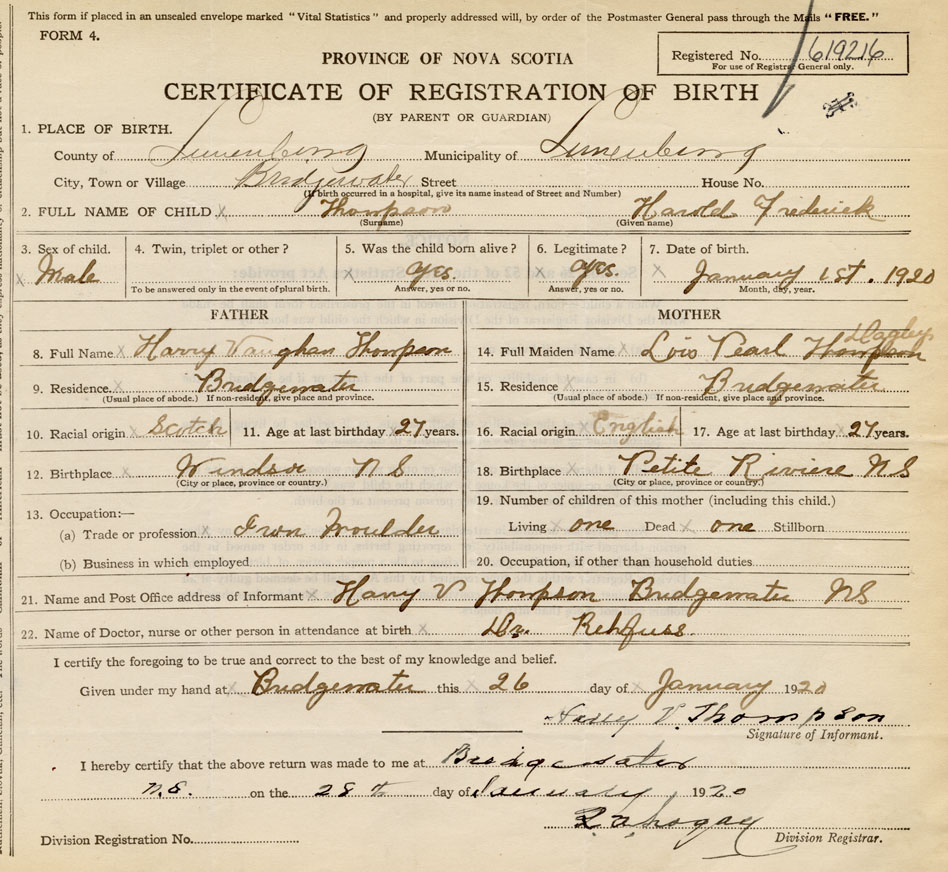 This form if placed in an unsealed envelope marked "Vital Statistics" and properly addressed will, by order of the Postmaster General pass through the Mails "FREE."
FORM 4.
Registered No. 619216
For use of Registrar General only.
PROVINCE OF NOVA SCOTIA
CERTIFICATE OF REGISTRATION OF BIRTH
(BY PARENT OR GUARDIAN)
1. PLACE OF BIRTH.
County of Lunenburg Municipality of Lunenburg
City, Town or Village Bridgewater Street House No.
(If birth occurred in a hospital, give its name instead of Street and Number)
2. FULL NAME OF CHILD X Thompson Harold Frederick
(Surname) (Given name)
3. Sex of child. 4. Twin, triplet or other? 5. Was the child born alive? 6. Legitimate? 7. Date of birth.
X Male X Yes. X Yes. X January 1st. 1920
To be answered only in the event of plural birth. Answer, yes or no. Answer, yes or no. Month, day, year.
FATHER MOTHER
Dagley
8. Full Name X Harry Vaughan Thompson 14. Full Maiden Name X Lois Pearl Thompson
9. Residence. X Bridgewater 15. Residence X Bridgewater
(Usual place of abode.) If non-resident, give place and province. (Usual place of abode.) If non-resident, give place and province.
10. Racial origin X Scotch 11. Age at last birthday X 27 years. 16. Racial origin X English 17. Age at last birthday X 27 years.
12. Birthplace X Windsor N S 18. Birthplace X Petite Riviere N S
(City or place, province or country.) (City or place, province or country.)
19. Number of children of this mother (including this child.)
13. Occupation:—
(a) Trade or profession X Iron Moulder Living X one Dead X one Stillborn
(b) Business in which employed 20. Occupation, if other than household duties
21. Name and Post Office address of Informant X Harry V Thompson Bridgewater NS
22. Name of Doctor, nurse or other person in attendance at birth X Dr. Rehfuss.
I certify the foregoing to be true and correct to the best of my knowledge and belief.
Given under my hand at X Bridgewater this X 26 day of X January 1920
Harry V. Thompson
Signature of Informant.
I hereby certify that the above return was made to me at Bridgewater
N.S. on the 28th day of January, 1920
Division Registration No. Division Registrar.